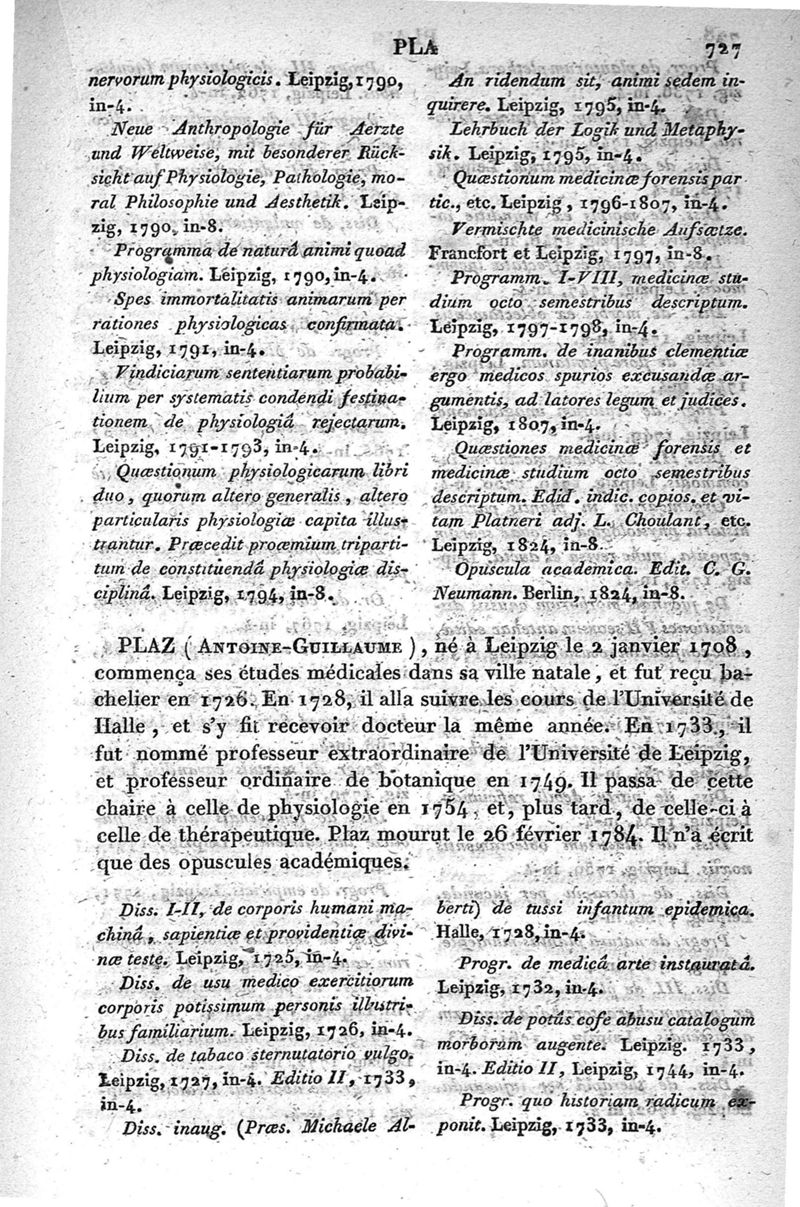 PLA 727
nervorum physiologicis. Leipzig, 1790,
in-4.
Neue Anthropologie für Aerzte
und Weltweise, mit besonderer Rück-
sicht auf Physiologie, Pathologie, mo-
ral Philosophie und Aesthetik. Leip-
zig, 1790, in-8.
Programma de naturâ animi quoad
physiologiam. Leipzig, 1790, in-4.
Spes immortalitatis animarum per
rationes physiologicas confirmata.
Leipzig, 1791, in-4.
Vindiciarum sententiarum probabi-
lium per systematis condendi festina-
tionem de physiologiâ rejectarum.
Leipzig, 1791-1793, in-4.
Quæstionum physiologicarum libri
duo, quorum altero generalis, altero
particularis physiologiæ capita illus-
trantur. Præcedit proœmium triparti-
tum de constituendâ physiologiæ dis-
ciplinâ. Leipzig, 1794, in-8.
An ridendum sit, animi sedem in-
quirere. Leipzig, 1795, in-4.
Lehrbuch der Logik und Metaphy-
sik. Leipzig, 1795, in-4.
Quæstionum medicinæ forensis par
tic., etc. Leipzig, 1796-1807, in-4.
Vermischte medicinische Aufsætze.
Francfort et Leipzig, 1797, in-8.
Programm. I-VIII, medicinæ stu-
dium octo semestribus descriptum.
Leipzig, 1797-1798, in-4.
Programm. de inanibus clementiæ
ergo medicos spurios excusandæ ar-
gumentis, ad latores legum et judices.
Leipzig, 1807, in-4.
Quæstiones medicinæ forensis et
medicinæ studium octo semestribus
descriptum. Edid. indic. copios. et vi-
tam Platneri adj. L. Choulant, etc.
Leipzig, 1824, in-8.
Opuscula academica. Edit. C. G.
Neumann. Berlin, 1824, in-8.
PLAZ (ANTOINE-GUILLAUME), né à Leipzig le 2 janvier 1708,
commença ses études médicales dans sa ville natale, et fut reçu ba-
chelier en 1726. En 1728, il alla suivre les cours de l'Université de
Halle, et s'y fit recevoir docteur la même année. En 1733, il
fut nommé professeur extraordinaire de l'Université de Leipzig,
et professeur ordinaire de botanique en 1749. Il passa de cette
chaire à celle de physiologie en 1754, et, plus tard, de celle-ci à
celle de thérapeutique. Plaz mourut le 26 février 1784. Il n'a écrit
que des opuscules académiques.
Diss. I-II, de corporis humani ma-
chinâ, sapientiæ et providentiæ divi-
næ teste. Leipzig, 1725, in-4.
Diss. de usu medico exercitiorum
corporis potissimum personis illustri-
bus familiarium. Leipzig, 1726, in-4.
Diss. de tabaco sternutatorio vulgo.
Leipzig, 1727, in-4. Editio II, 1733,
in-4.
Diss. inaug. (Præs. Michaele Al-
berti) de tussi infantum epidemica.
Halle, 1728, in-4.
Progr. de medicâ arte instauratâ.
Leipzig, 1732, in-4.
Diss. de potûs cofe abusu catalogum
morborum augente. Leipzig. 1733,
in-4. Editio II, Leipzig, 1744, in-4.
Progr. quo historiam radicum ex-
ponit. Leipzig, 1733, in-4.